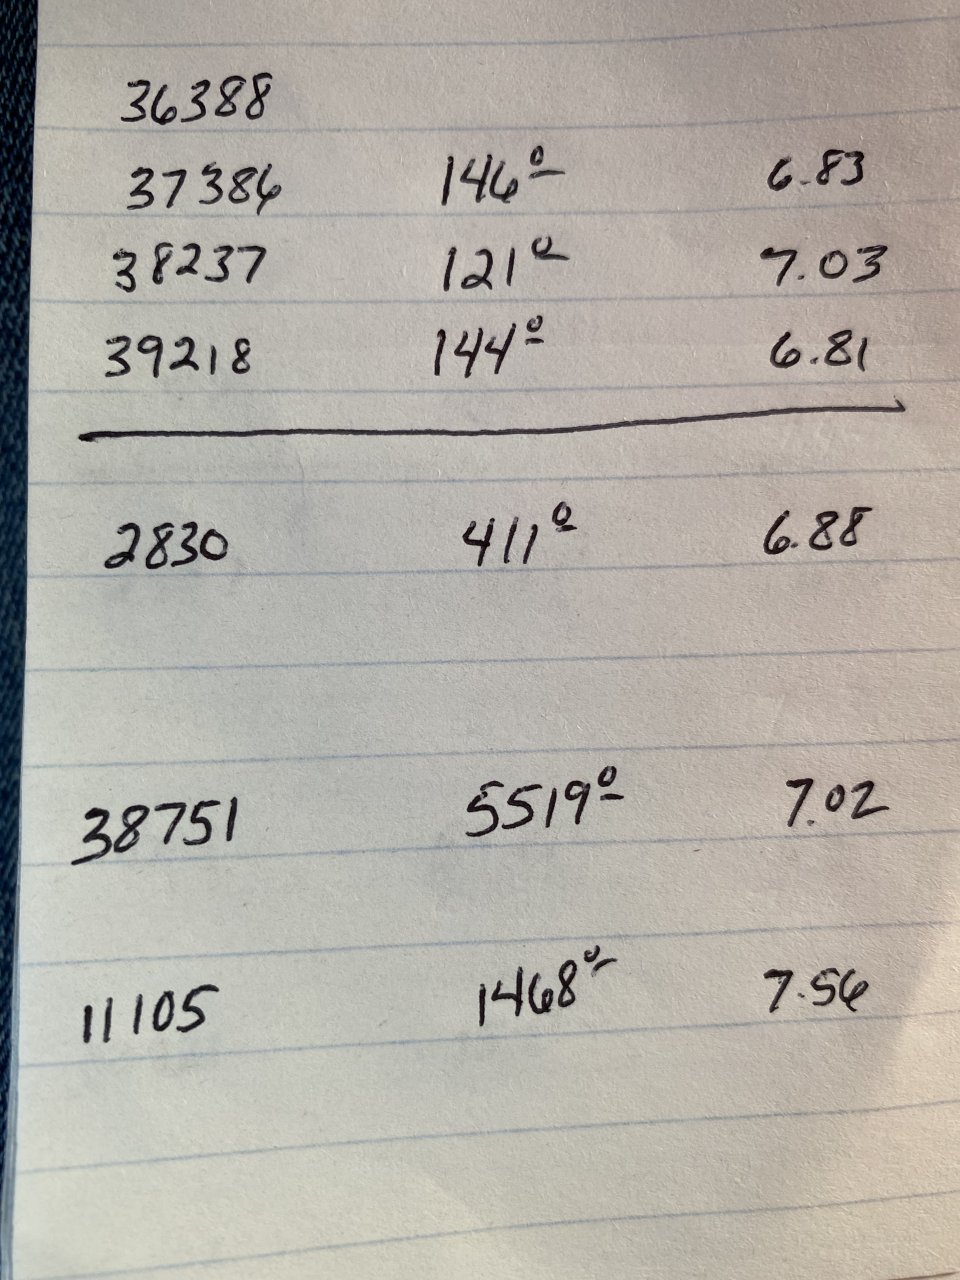 36388
37386 146º 6.83
38237 121º 7.03
39218 144º 6.81
2830 411º 6.88
38751 5519º 7.02
11105 1468º 7.56